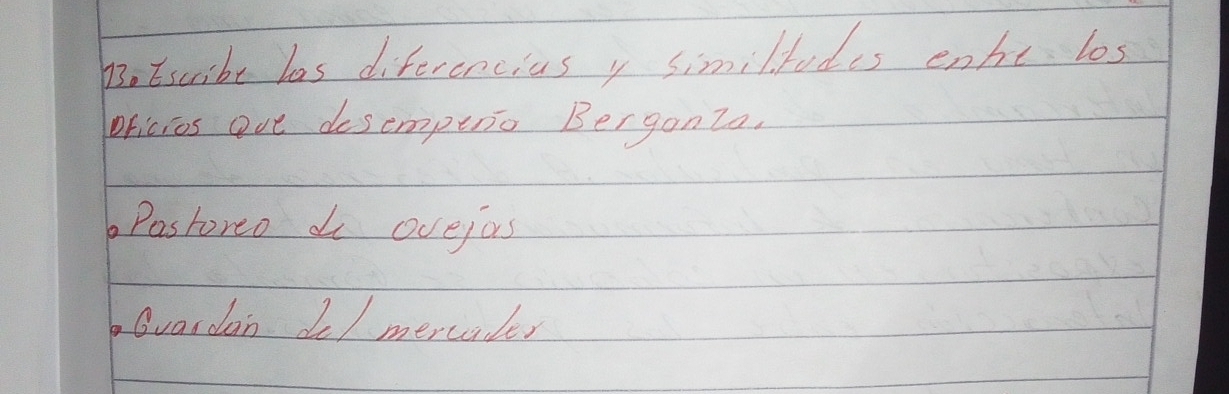 13. Escribe las diferencias y similitudes entre los
oficios que desempeña Berganza.
• Pastoreo de ovejas
• Guardián del mercader